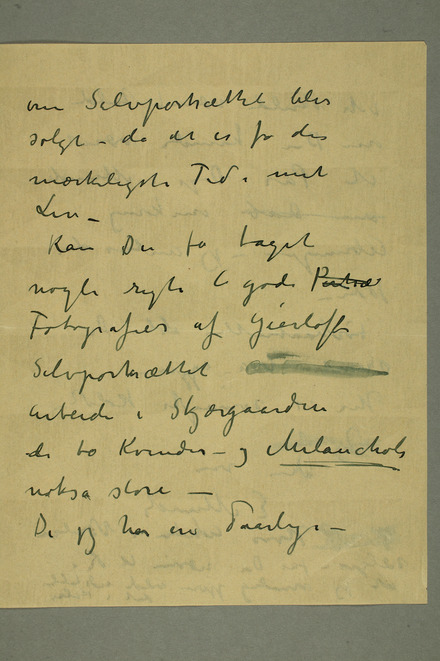 om Selvportrættet blev
solgt – da det er fra den
mærkeligste Tid i mit
Liv –
Kan Du få taget
nogle rigti gode Portræ
Fotografier af Gierløff
Selvportrættet
arbeide i Skjærgaarden
de to Kvinder – og Melancholi
nokså store –
De jeg har er daarlige –